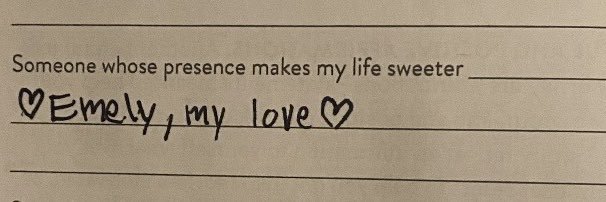 Someone whose presence makes my life sweeter
♡Emely, my love♡